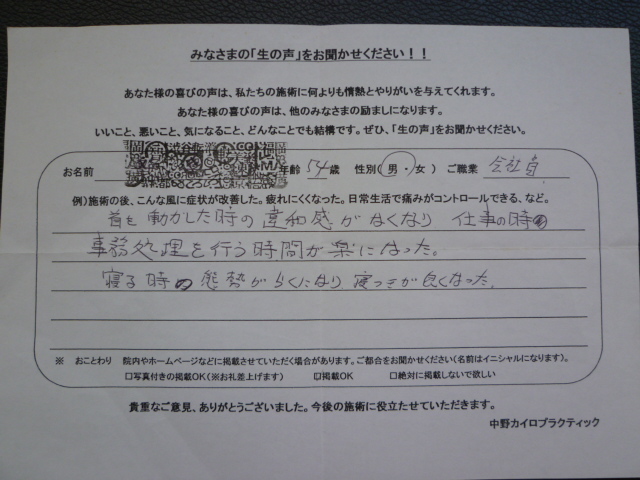 みなさまの「生の声」をお聞かせください！！
あなた様の喜びの声は、私たちの施術に何よりも情熱とやりがいを与えてくれます。
あなた様の喜びの声は、他のみなさまの励ましになります。
いいこと、悪いこと、気になること、どんなことでも結構です。ぜひ、「生の声」をお聞かせください。
お名前 年齢 54 歳 性別(男・女) ご職業 会社員
例)施術の後、こんな風に症状が改善した。疲れにくくなった。日常生活で痛みがコントロールできる、など。
首を動かした時の違和感がなくなり 仕事の時の
事務処理を行う時間が楽になった。
寝る時の態勢がらくになり寝つきが良くなった。
※ おことわり 院内やホームページなどに掲載させていただく場合があります。ご都合をお聞かせください(名前はイニシャルになります)。
□写真付きの掲載OK(※お礼差上げます) ☑掲載OK □絶対に掲載しないで欲しい
貴重なご意見、ありがとうございました。今後の施術に役立たせていただきます。
中野カイロプラクティック